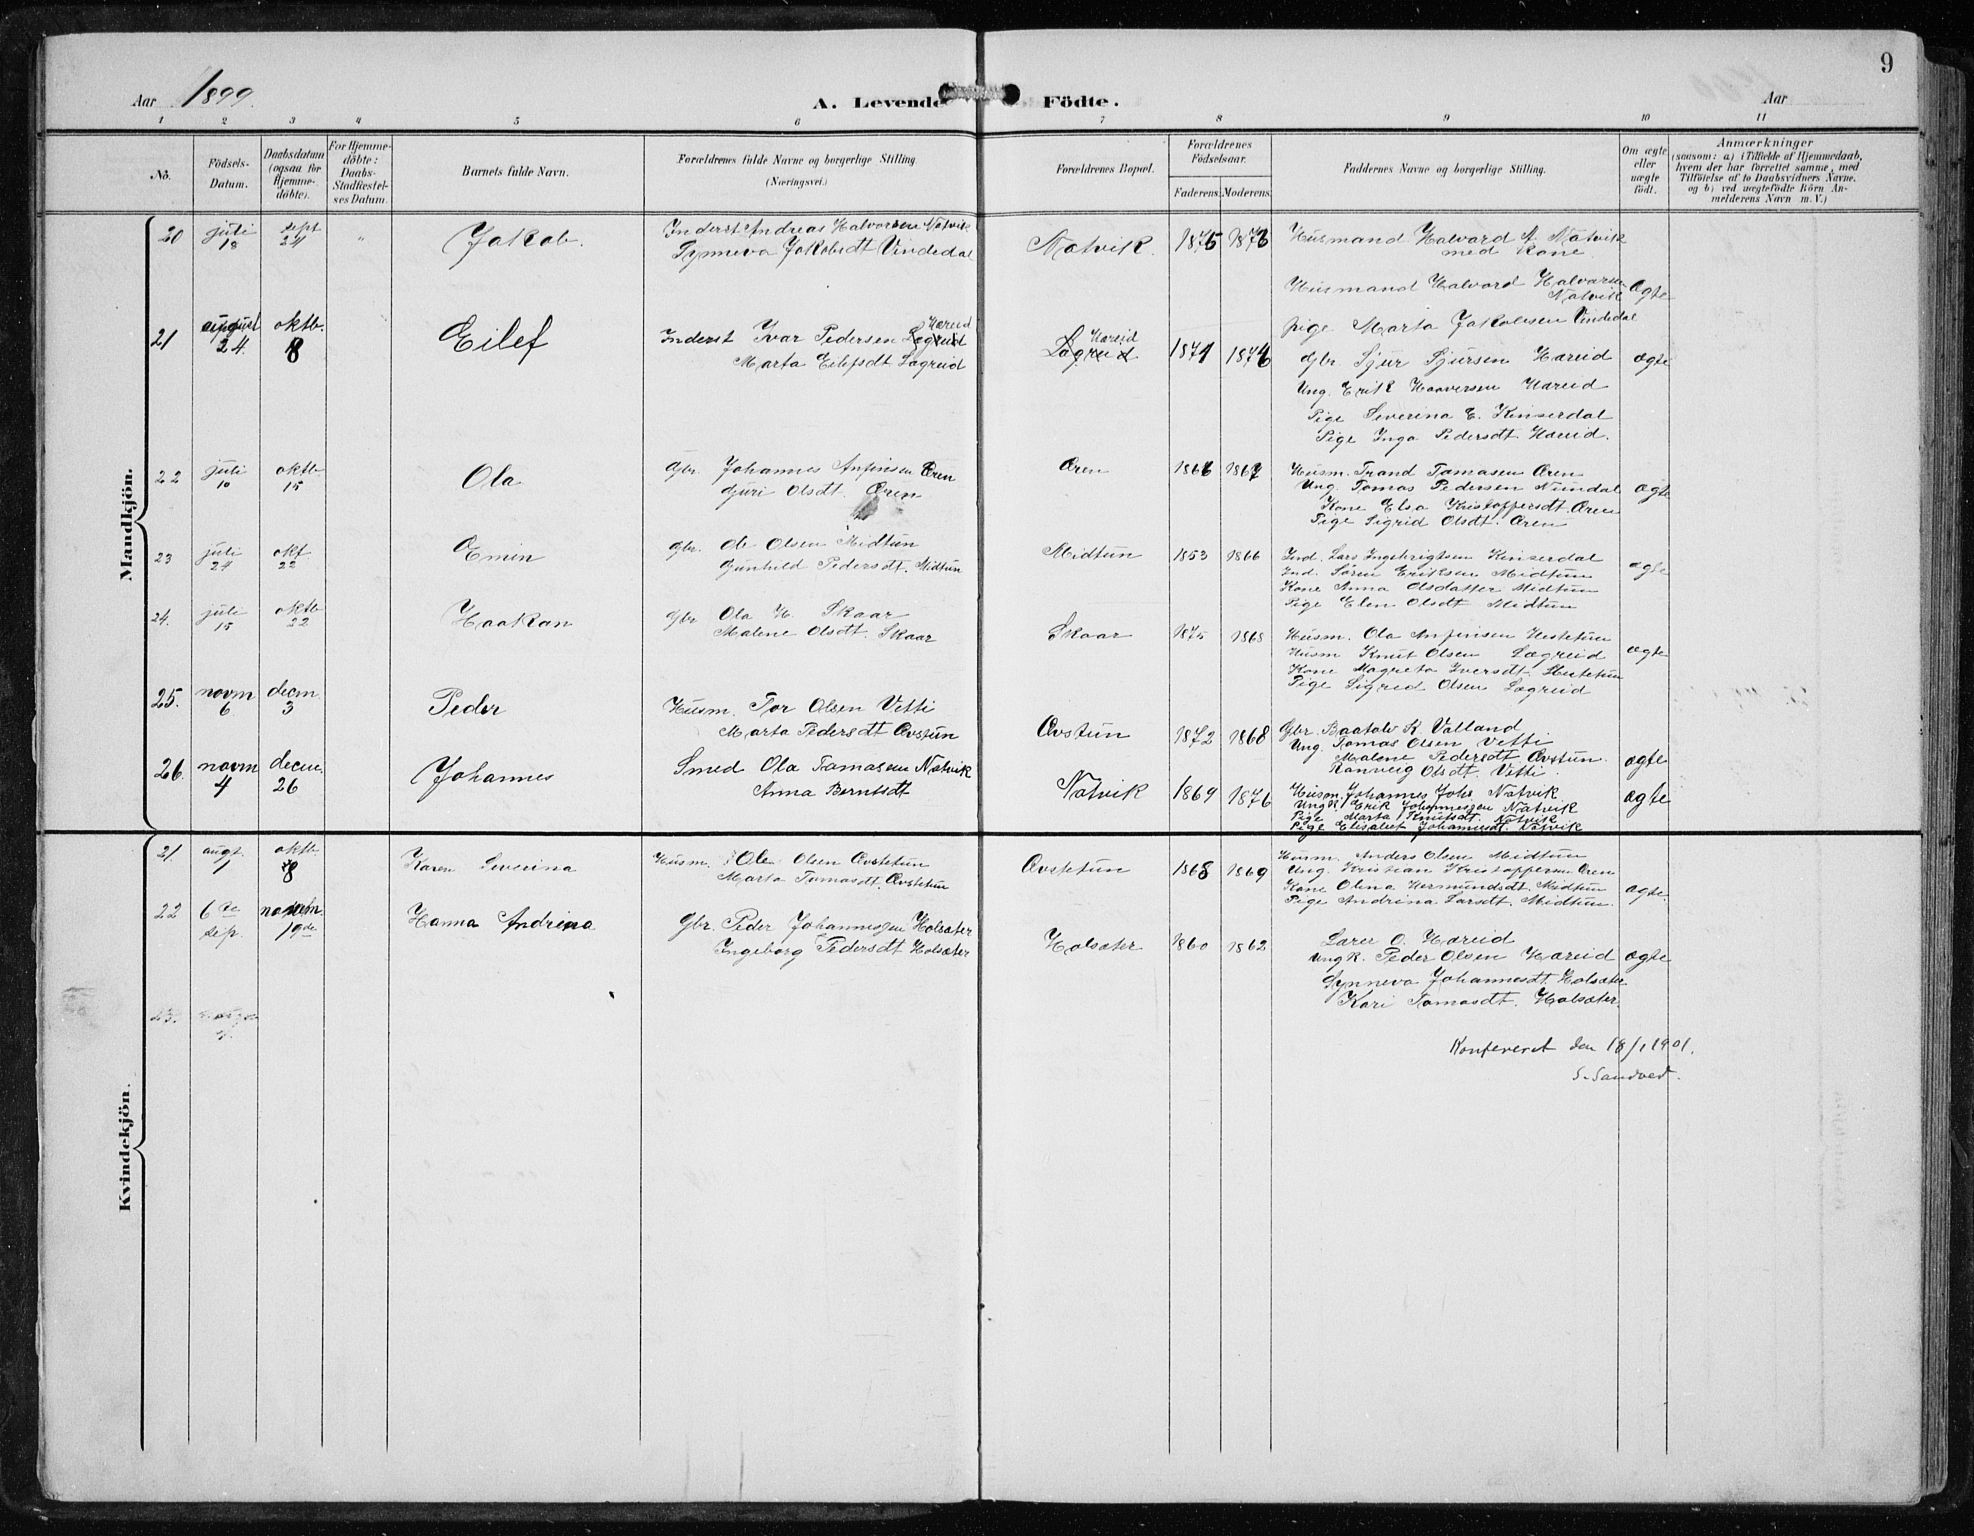 9
Aar 1899.
A. Levende Födte.
Aar
1 2 3 4 5 6 7 8 9 10 11
No.
Födsels-Datum.
Daabsdatum (ogsaa for Hjemme-döbte).
For Hjemme-döbte: Daabs-Stadfæstel-ses Datum.
Barnets fulde Navn.
Forældrenes fulde Navne og borgerlige Stilling. (Næringsvei.)
Forældrenes Bopæl.
Forældrenes Födselsaar.
Faderens. Moderens.
Faddernes Navne og borgerlige Stilling.
Om ægte eller uægte födt.
Anmærkninger
(saasom: a) i Tilfælde af Hjemmedaab,
hvem der har forrettet samme, med
Tilföielse af to Daabsvidners Navne.
og b) ved uægtefödte Börn An-
melderens Navn m. V.)
Mandkjön.
20 juli 18 sept 24 " Jakob.
Inderst Andreas Halvorsen Natvik
Synneva Jakobsdt Vindedal
Natvik. 1875 1873
Husmand Halvard A. Natvik
med Kone
Husmand Halvard Halvarsen
Natvik
pige Marta Jakobsen Vindedal
ægte
21 august 24. oktb. 8 Eilef
Hareid
Inderst Ivar Pedersen Lægreid
Marta Eilefsdt Lægreid
Hareid
Lægreid 1871 1874
Gbr. Sjur Sjursen Hareid
Ung. Erik Haaversen Hareid
Pige Severina E. Kinserdal
Pige Inga Pedersdt. Hareid.
ægte
22 juli 10 oktb 15 Ola
Gbr. Johannes Anfinsen Æren
Guri Olsdt. Æren
Æren 1867
Husm. Trand Tamasen Æren
Ung. Tomas Pedersen Nundal
Kone Elsa Kristoffersdt. Æren
Pige Sigrid Olsdt. Æren
ægte
23 juli 24 okt 22 Emin
Gbr. Ole Olsen Midtun
Gunhild Pedersdt. Midtun
Midtun 1853 1866
Ind. Lars Ingebrigtsen Kinserdal
Ind. Sören Eriksen Midtun
Kone Anna Olsdatter Midtun
Pige Elen Olsdt Midtun
ægte
24. juli 15 oktb 22 Haakan
Gbr Ola H. Skaar
Malene Olsdt. Skaar
Skaar 1875 1868
Husm. Ola Anfinsen Hestetun
Husm Knut Olsen Lægreid
Kone Magreta Iversdt. Hestetun
Pige Sigred Olsen Lægreid
ægte
25. novm 6 decm 3 Peder
Husm. Tor Olsen Vetti
Marta Pedersdt Øvstun
Øvstun 1872 1868
Gbr. Baatolv K. Valland
Ung. Tomas Olsen Vetti
Malene Pedersdt Øvstun.
Ranveig Olsdt. Vetti.
ægte
26. novm 4 decm. 26 Johannes
Smed Ola Tamasen Natvik
Anna Berntsdt
Natvik 1869 1876
Husm. Johannes Johs Natvik
Ungk. Erik Johannessen Natvik
Pige Marta Knutsdt. Natvik
Pige Elisabet Johannesdt. Natvik
ægte
Kvindekjön.
21 augt. 1 oktb 8 Karen Severina
Husm. Ole Olsen Øvstetun
Marta Tomasdt. Øvstetun
Øvstetun 1868 1869
Husm. Anders Olsen Midtun
Ung. Kristian Kristoffersen Æren
Kone Olina Hermundsdt. Midtun
Pige Andrina Larsdt. Midtun.
ægte.
22 6te sep. novbm. 19de Hanna Andrina
Gbr. Peder Johannessen Holsæter
Ingeborg Pedersdt Holsæter
Holsæter 1860 1862
Lærer O. Hareid
Ungk. Peder Olsen Hareid
Synneva Johannesdt. Holsæter
Kari Tomasdt. Holsæter.
ægte
23.
Konfereret den 18/1 1901.
S. Sandved.